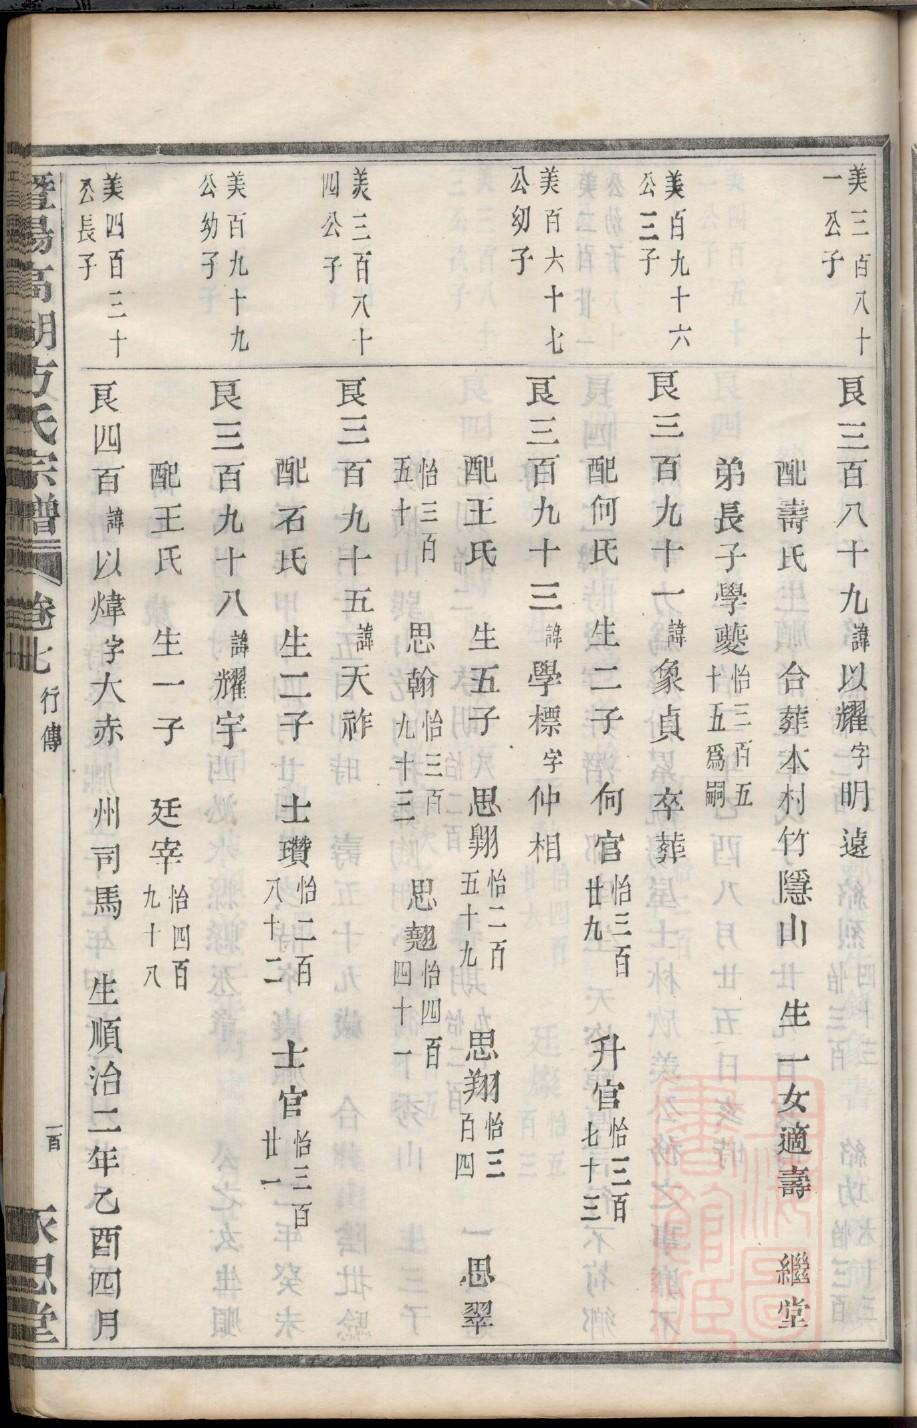 美三百八十一公子
艮三百八十九諱以耀字明遠
配壽氏 合葬本村竹隱山 生一女適壽 繼堂
弟長子學夔怡三百五十五爲嗣
美百九十六公三子
艮三百九十一諱象貞 卒葬
配何氏 生二子 何官怡三百廿九 升官怡三百七十三
美百六十七公幼子
艮三百九十三諱學標字仲相
配王氏 生五子 思翔怡二百五十九 思翔怡三百四 思翠
怡三百五十 思翰怡三百九十三 思翹怡四百四十一
美三百八十四公子
艮三百九十五諱天祚
配石氏 生二子 士瓚怡二百八十二 士官怡三百廿一
美百九十九公幼子
艮三百九十八諱耀宇
配王氏 生一子 廷宰怡四百九十八
美四百三十公長子
艮四百諱以煒字大赤 州司馬 生順治二年乙酉四月
暨陽高湖方氏宗譜 卷七 行傳 一百 永思堂